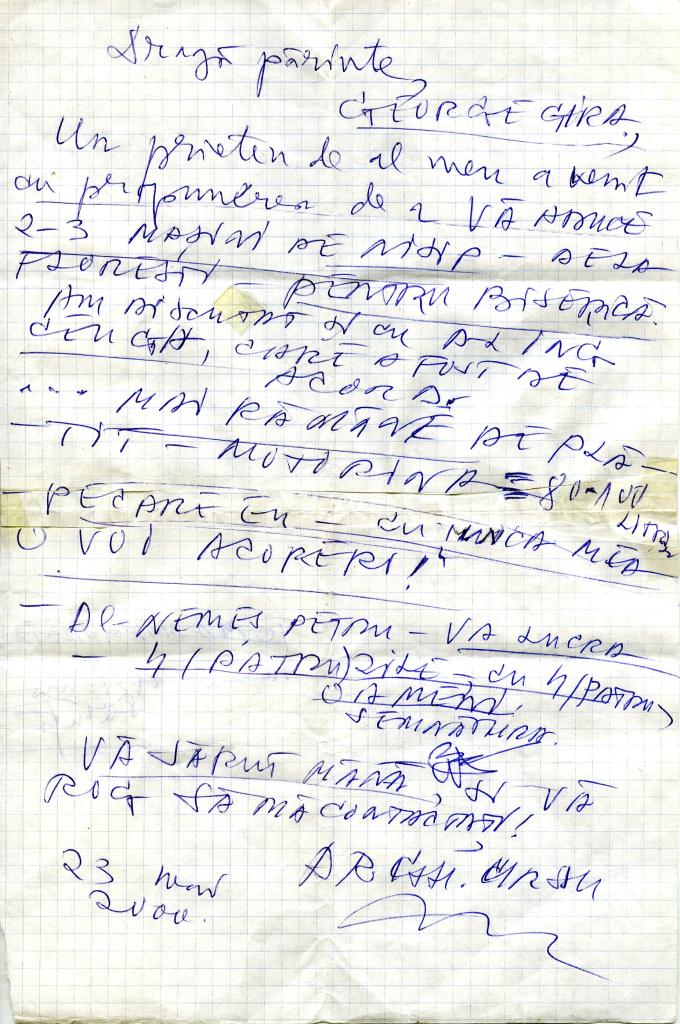 Dragă părinte,
GEORGE GÎRA,
Un prieten de al meu a venit
cu propunerea de a VĂ ADUCE
2-3 MAȘINI DE NISIP – DELA
FLOREȘTI – PENTRU BISERICĂ.
AM DISCUTAT ȘI CU DL ING
CARE A FOST DE
ACORD.
.... MAI RĂMÂNE DE PLĂ-
-TIT – MOTORINA = 80-100
LITRI
– PE CARE EU – CU MUNCA MEA
O VOI ACOPERI!
– DL-NEMEȘ PETRU – VA LUCRA
– 4 (PATRU) ZILE – CU 4 (PATRU)
OAMENI.
SEMNĂTURA.
VĂ SĂRUT MÂNA ȘI VĂ
ROG SĂ MĂ CONTACTAȚI!
23 mai
2000.
ARCHI. URSU